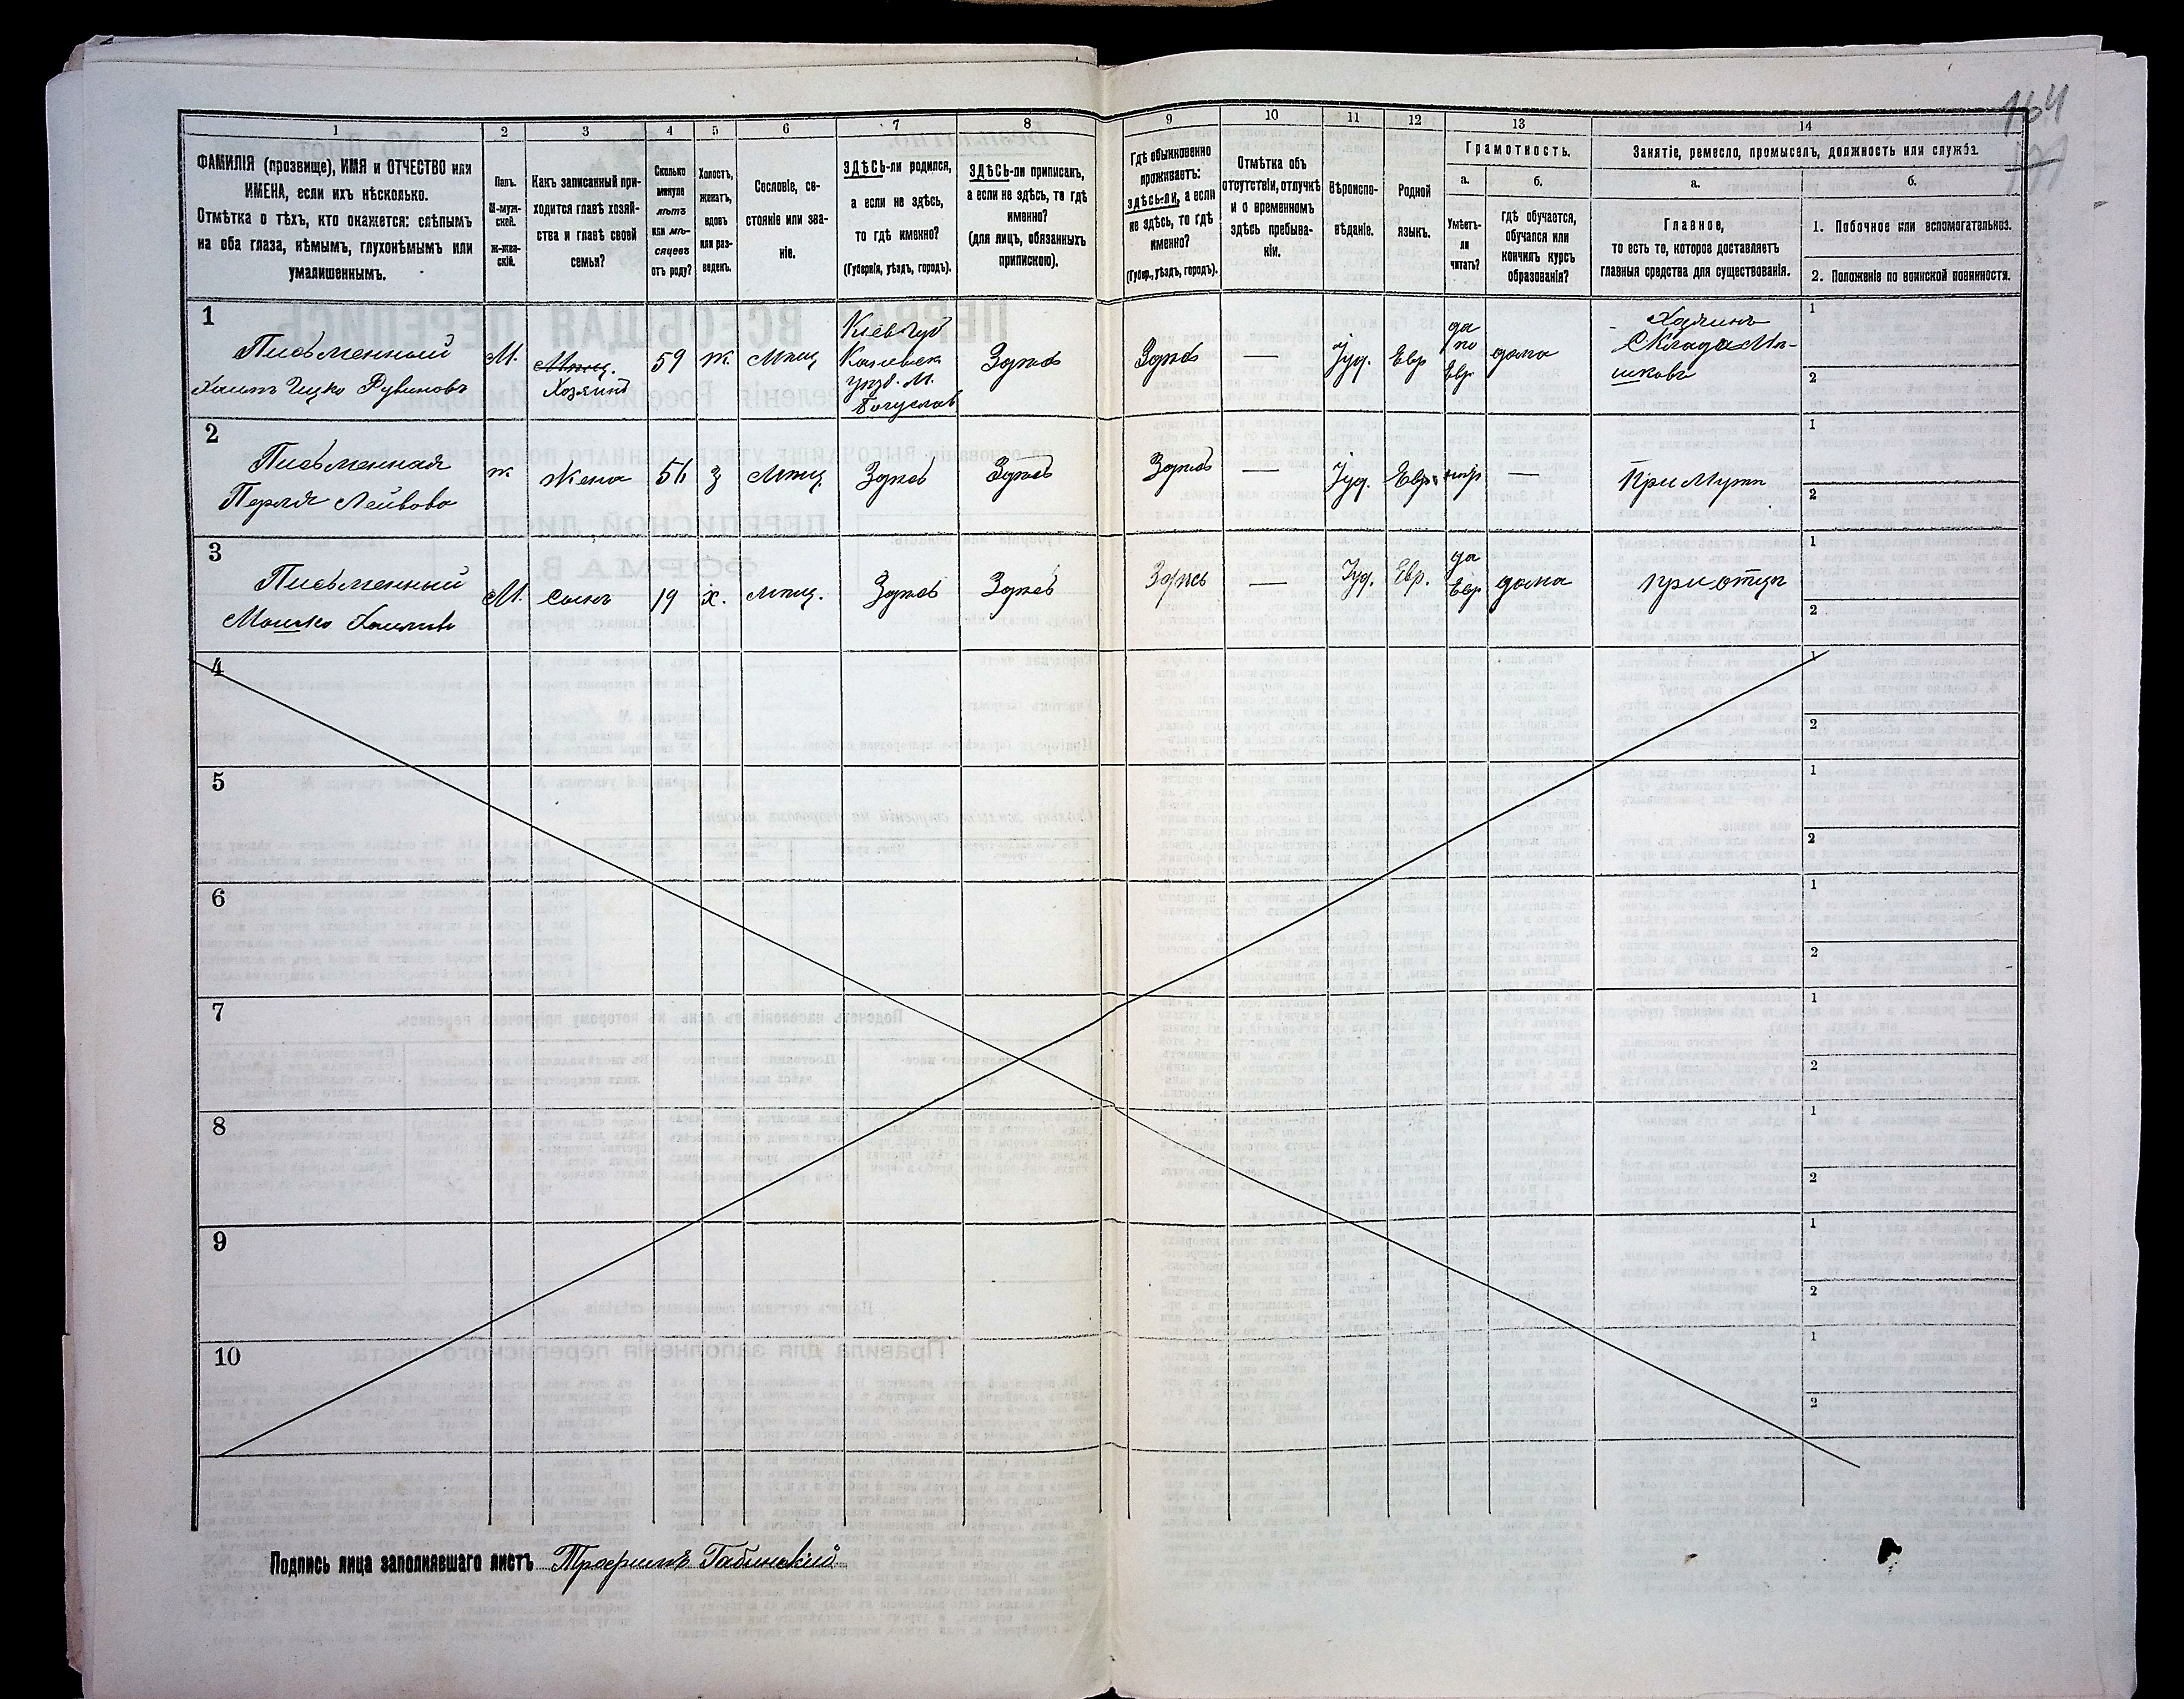 164
1
2
3
4
5
6
7
8
9
10
11
12
13
14
ФАМИЛІЯ (прозвище), ИМЯ и ОТЧЕСТВО или
ИМЕНА, если ихъ нѣсколько.
Отмѣтка о тѣхъ, кто окажется: слѣпымъ
на оба глаза, нѣмымъ, глухонѣмымъ или
умалишеннымъ.
Полъ.
М-муж-
ской.
Ж-жен-
скій.
Какъ записанный при-
ходится главѣ хозяй-
ства и главѣ своей
семьи?
Сколько
минуло
лѣтъ
или мѣ-
сяцевъ
отъ роду?
Холостъ,
женатъ,
вдовъ
или раз-
веденъ.
Сословіе, со-
стояніе или зва-
ніе.
ЗДѢСЬ-ли родился,
а если не здѣсь,
то гдѣ именно?
(Губернія, уѣздъ, городъ).
ЗДѢСЬ-ли приписанъ,
а если не здѣсь, то гдѣ
именно?
(для лицъ, обязанныхъ
припискою).
Гдѣ обыкновенно
проживаетъ:
здѣсь-ли, а если
не здѣсь, то гдѣ
именно?
(Губер., уѣздъ, городъ).
Отмѣтка объ
отсутствіи, отлучкѣ
и о временномъ
здѣсь пребыва-
ніи.
Вѣроиспо-
вѣданіе.
Родной
языкъ.
Грамотность.
а.
Умѣетъ-
ли
читать?
б.
гдѣ обучается,
обучался или
кончилъ курсъ
образованія?
Занятіе, ремесло, промыселъ, должность или служба.
а.
Главное,
то есть то, которое доставляетъ
главныя средства для существованія.
б.
1. Побочное или вспомогательное.
2. Положеніе по воинской повинности.
1
Письменный
Хаимъ Ицко Рувиновъ
М.
Хозяинъ
59
ж.
Мѣщ
Кіев Губ
Каневск
уѣзд. М.
Богуслав
Здѣсь
Здѣсь
—
Іуд.
Евр
да
по
Евр
дома
Хозяинъ
Склада Мѣ-
шковъ
1
2
2
Письменная
Перля Лейвова
ж
Жена
56
з
Мѣщ
Здѣсь
Здѣсь
Здѣсь
—
Іуд.
Евр.
нѣт
—
При Мужѣ
1
2
3
Письменный
Мошко Хаимовъ
М.
Сынъ
19
х.
Мѣщ.
Здѣсь
Здѣсь
Здѣсь
—
Іуд.
Евр.
да
Евр
дома
при отцѣ
1
2
4
1
2
5
1
2
6
1
2
7
1
2
8
1
2
9
1
2
10
1
2
Подпись лица заполнявшаго листъ Трофимъ Габинскій